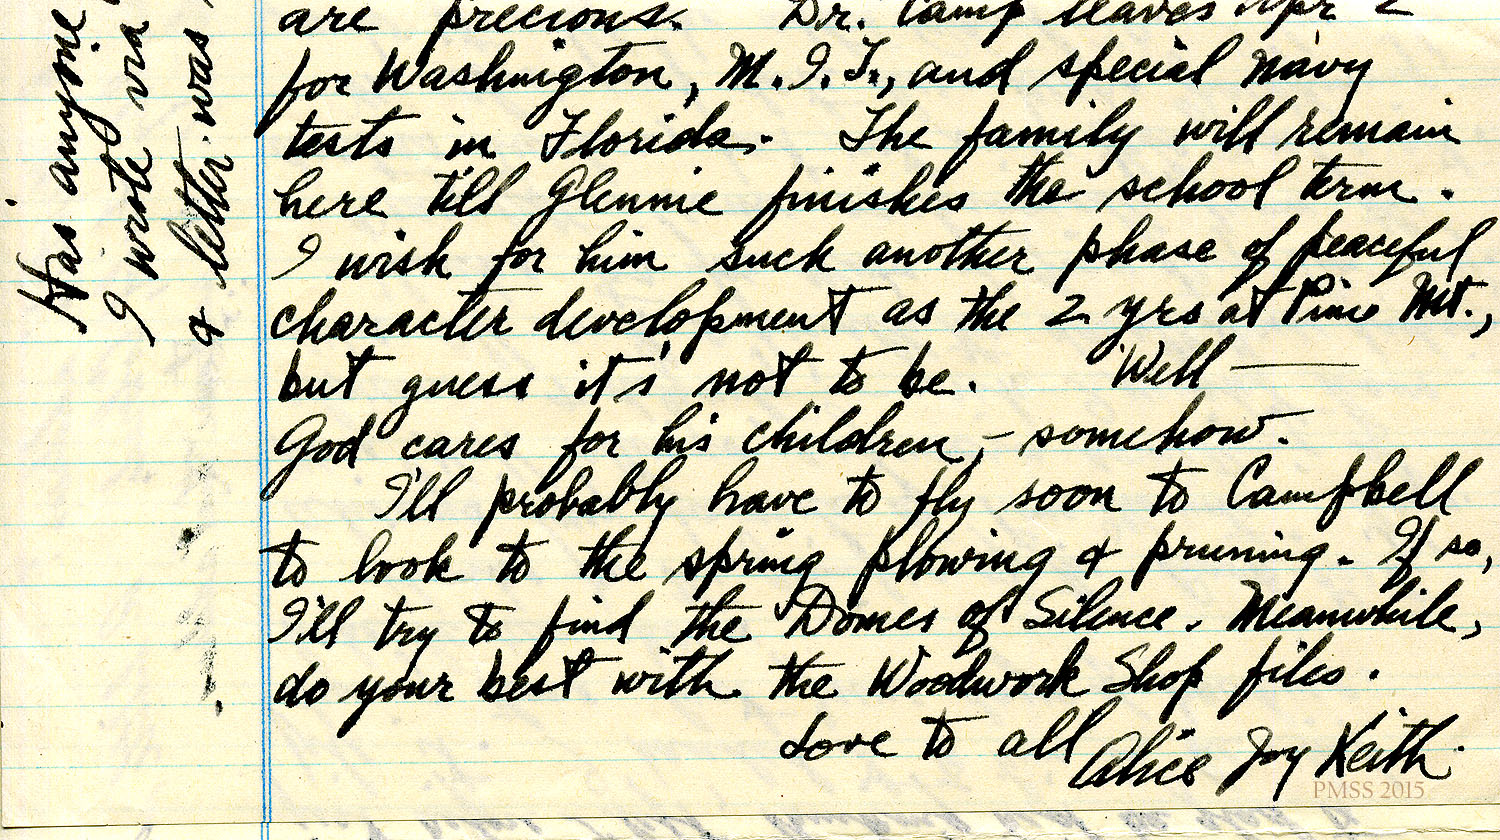 are precious. Dr. Camp leaves Apr 2
for Washington, M.I.T., and special navy
tests in Florida. The family will remain
here till Glennie finishes the school term.
I wish for him such another phase of peaceful
character development as the 2 yrs at Pine Mt.,
but guess it's not to be. Well —
God cares for his children, – somehow.
I'll probably have to fly soon to Campbell
to look to the spring plowing & pruning. If so,
I'll try to find the Domes of Silence. Meanwhile,
do your best with the Woodwork Shop files.
Love to all
Alice Joy Keith
Has anyone
I wrote via
& letter was
PMSS 2015